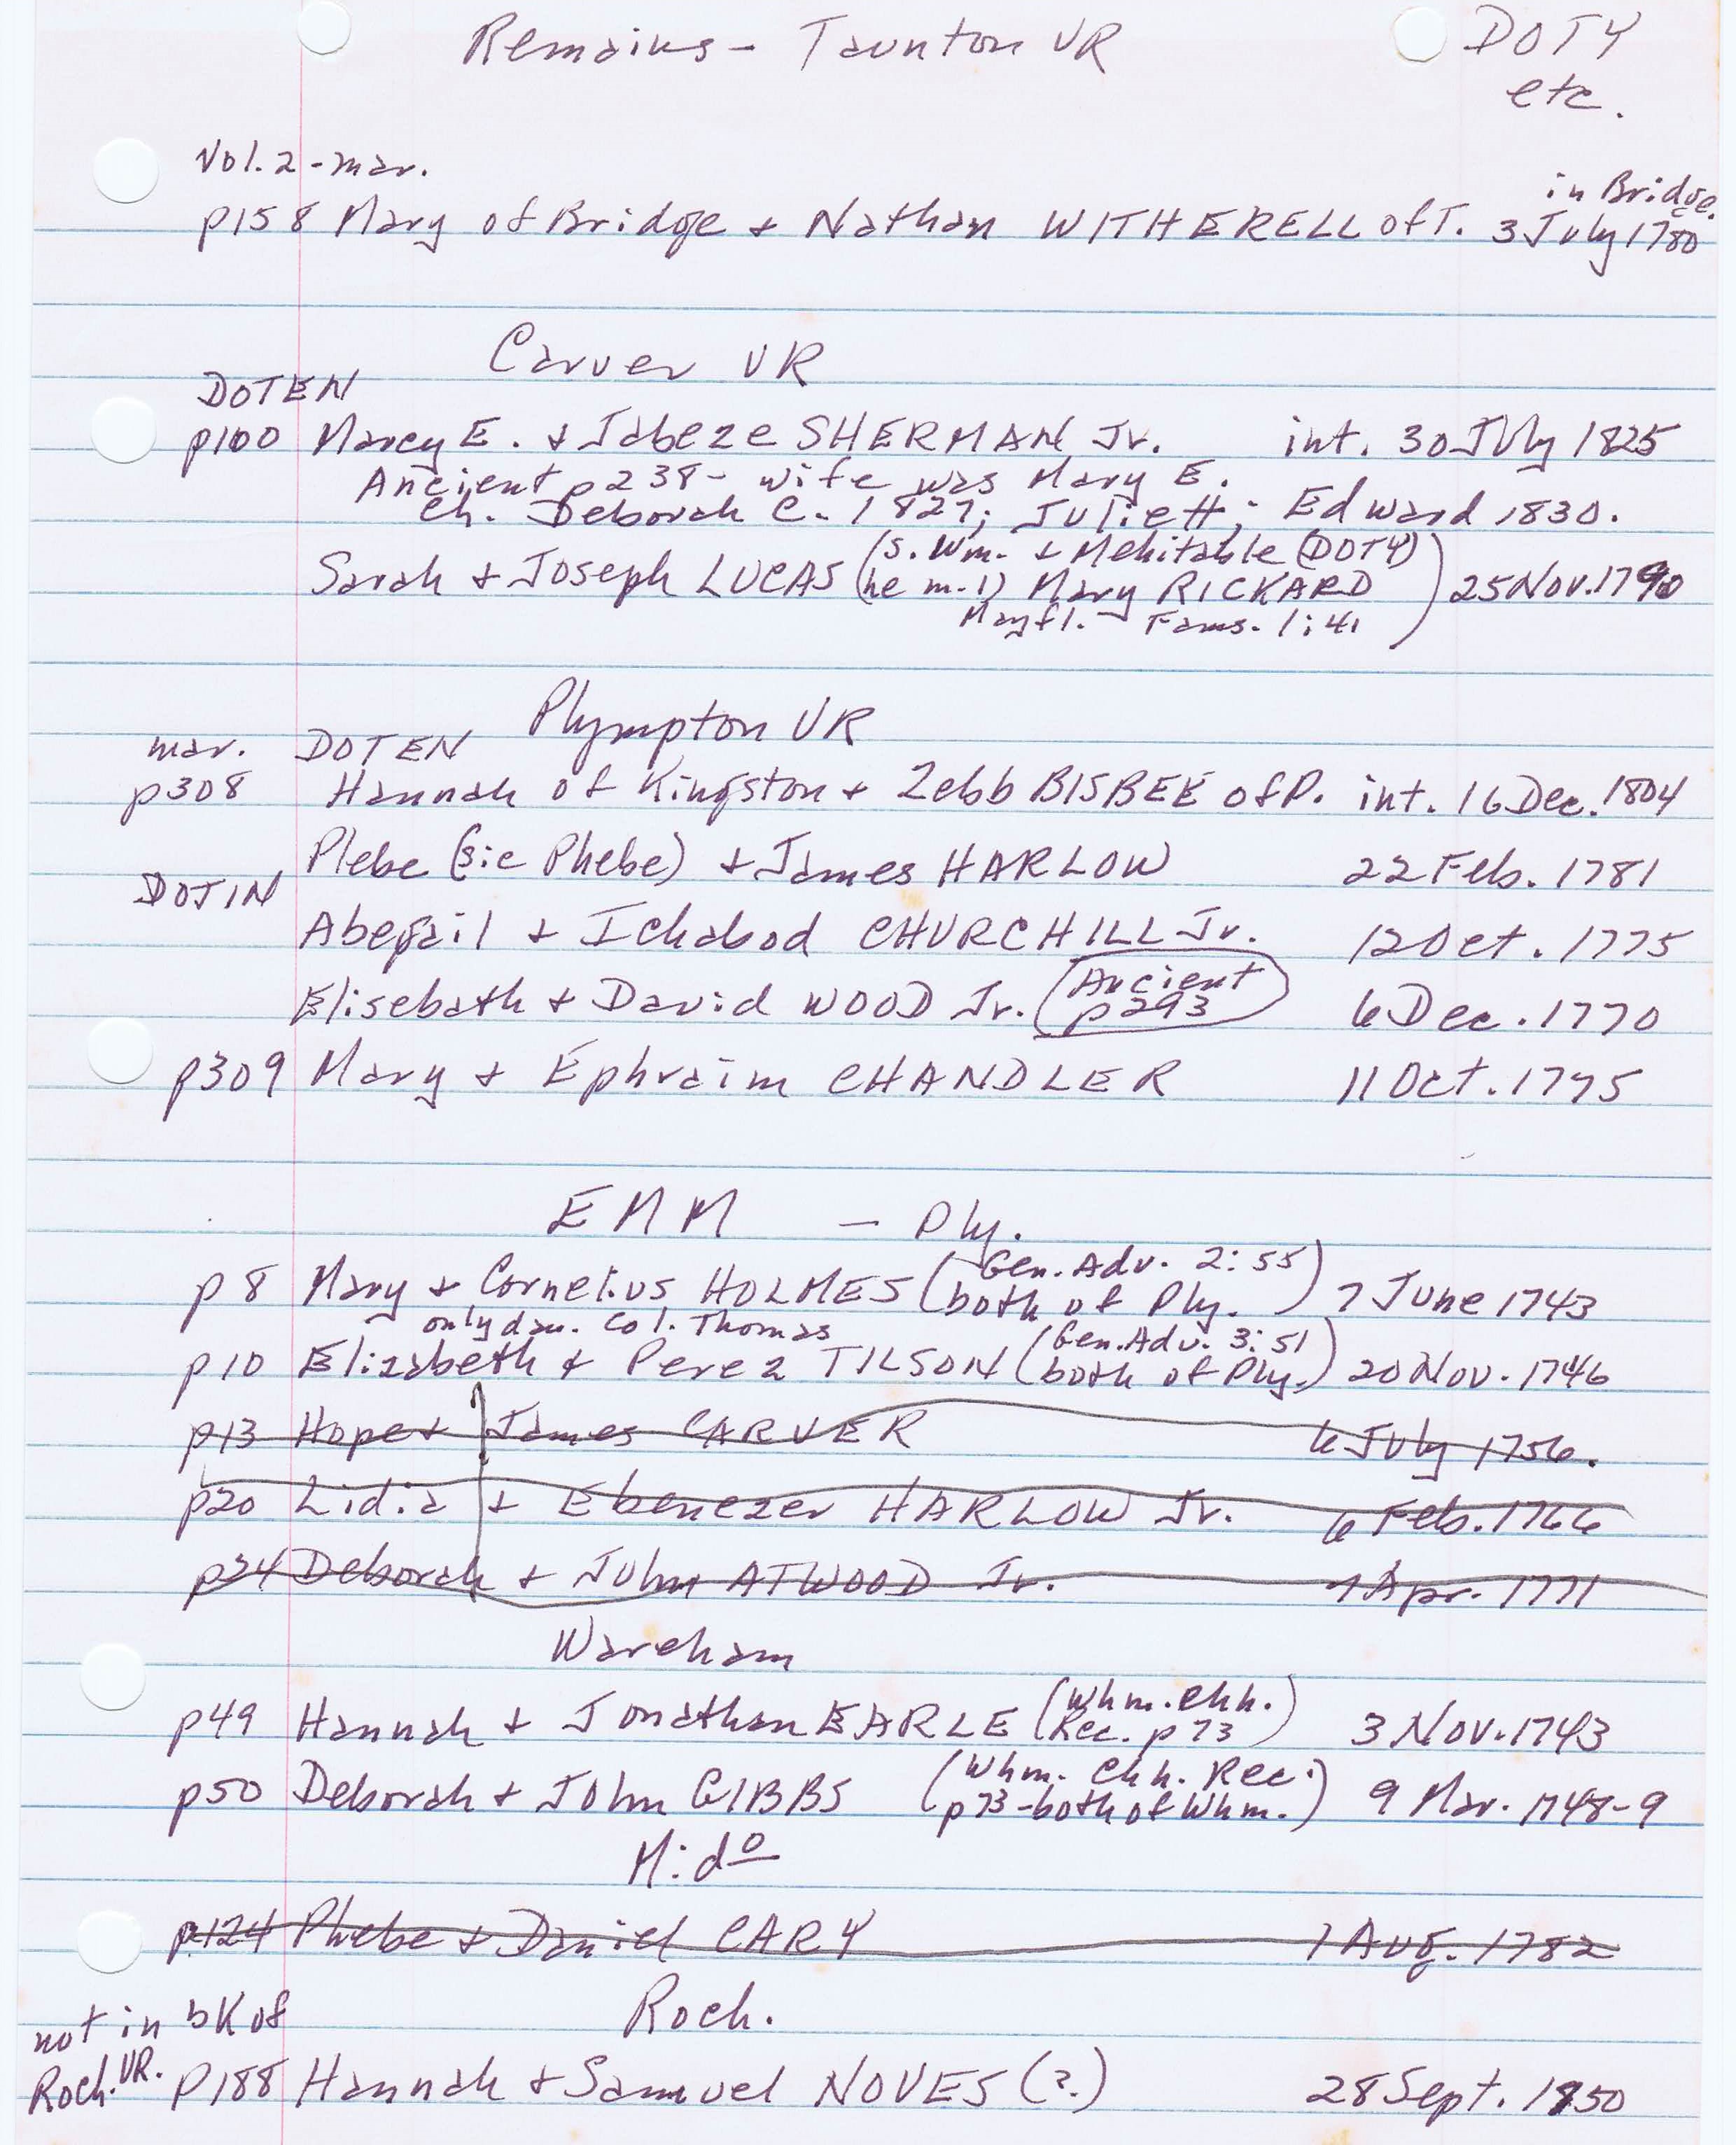 Remains - Taunton VR DOTY
etc.
Vol. 2 - mar.
in Bridge.
p158 Mary of Bridge + Nathan WITHERELL of T. 3 July 1780
Carver VR
DOTEN
p100 Marcy E. + Jabeze SHERMAN Jr. int. 30 July 1825
Ancient p238 - wife was Mary E.
ch. Deborah C. 1827; Juliett; Edward 1830.
(s. Wm. + Mehitable (DOTY)
Sarah + Joseph LUCAS (he m. 1) Mary RICKARD ) 25 Nov. 1790
Mayfl. Fams. 1:41
Plympton VR
mar. DOTEN
p308 Hannah of Kingston + Zebb BISBEE of P. int. 16 Dec. 1804
Plebe (sic Phebe) + James HARLOW 22 Feb. 1781
DOTIN
Abegail + Ichabod CHURCHILL Jr. 12 Oct. 1775
Elisebath + David WOOD Jr. (Ancient p293) 6 Dec. 1770
p309 Mary + Ephraim CHANDLER 11 Oct. 1775
EMM - Ply.
(Gen. Adv. 2:55)
p8 Mary + Cornelius HOLMES (both of Ply.) 7 June 1743
only dau. Col. Thomas (Gen. Adv. 3:51)
p10 Elizabeth + Perez TILSON (both of Ply.) 20 Nov. 1746
p13 Hope + James CARVER 6 July 1756.
p20 Lidia + Ebenezer HARLOW Jr. 6 Feb. 1766
p24 Deborah + John ATWOOD Jr. 7 Apr. 1771
Wareham
(Whm. Chh.)
p49 Hannah + Jonathan EARLE (Rec. p73 3 Nov. 1743
(Whm. Chh. Rec.)
p50 Deborah + John GIBBS (p73 - both of Whm.) 9 Mar. 1748-9
Mido
p124 Phebe + Daniel CARY 1 Aug. 1782
Roch.
not in bk of
Roch. VR. p188 Hannah + Samuel NOVES (?) 28 Sept. 1750